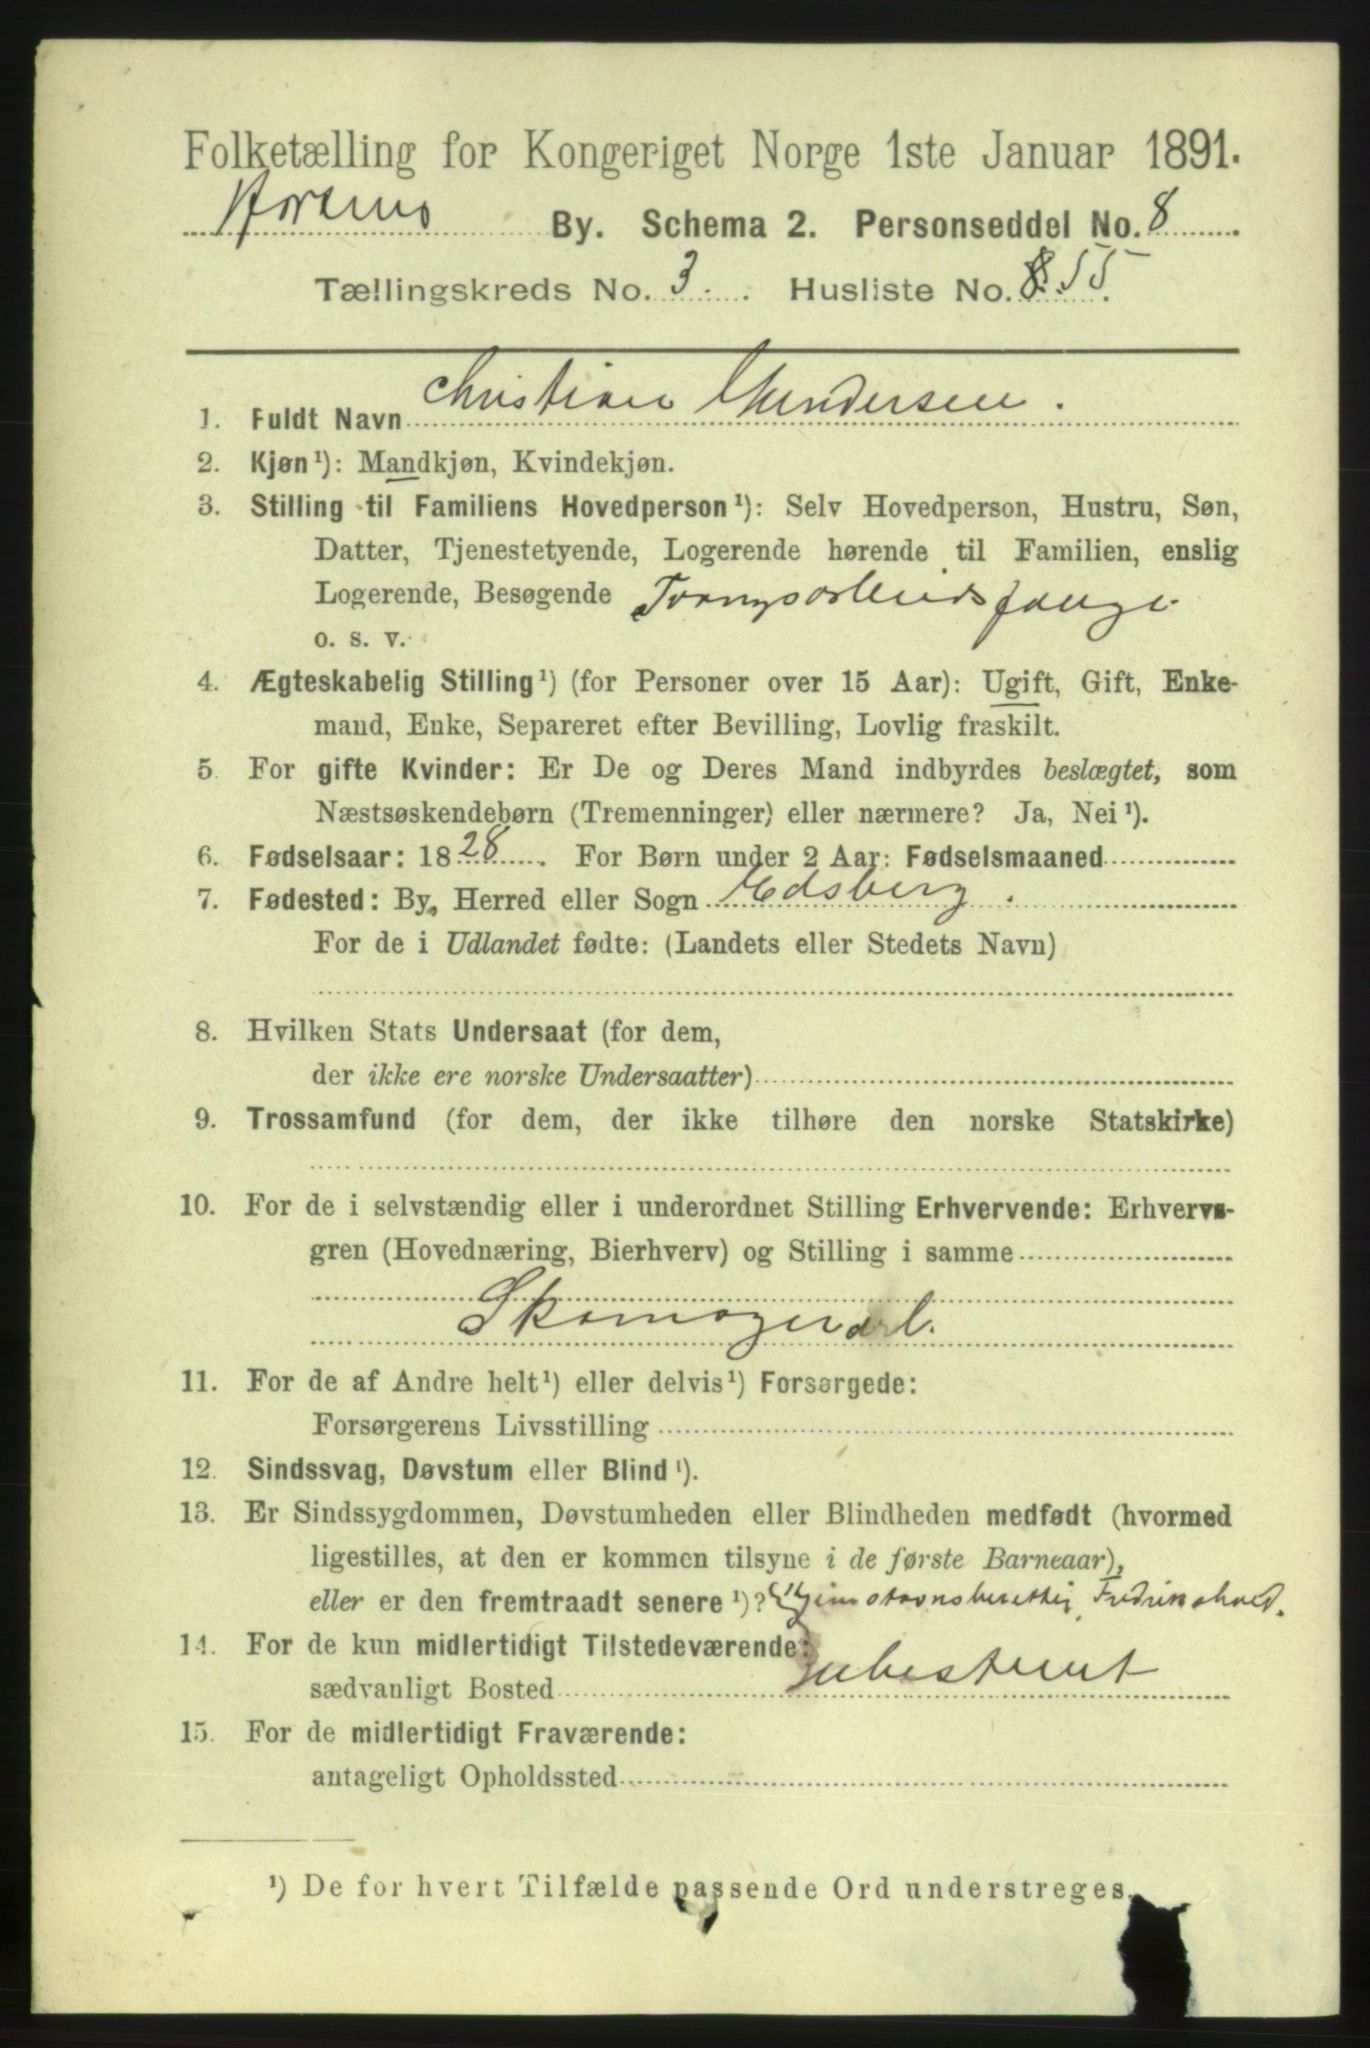 Folketælling for Kongeriget Norge 1ste Januar 1891.
Hortens By. Schema 2. Personseddel No. 8
Tællingskreds No. 3. Husliste No. 8.55.
1. Fuldt Navn Christian Gundersen.
2. Kjøn ¹): Mandkjøn, Kvindekjøn.
3. Stilling til Familiens Hovedperson ¹): Selv Hovedperson, Hustru, Søn,
Datter, Tjenestetyende, Logerende hørende til Familien, enslig
Logerende, Besøgende Tvangsarbeidsfange.
o. s. v.
4. Ægteskabelig Stilling ¹) (for Personer over 15 Aar): Ugift, Gift, Enke-
mand, Enke, Separeret efter Bevilling, Lovlig fraskilt.
5. For gifte Kvinder: Er De og Deres Mand indbyrdes beslægtet, som
Næstsøskendebørn (Tremenninger) eller nærmere? Ja, Nei ¹).
6. Fødselsaar: 1828. For Børn under 2 Aar: Fødselsmaaned
7. Fødested: By, Herred eller Sogn Edsberg.
For de i Udlandet fødte: (Landets eller Stedets Navn)
8. Hvilken Stats Undersaat (for dem,
der ikke ere norske Undersaatter)
9. Trossamfund (for dem, der ikke tilhøre den norske Statskirke)
10. For de i selvstændig eller i underordnet Stilling Erhvervende: Erhvervs-
gren (Hovednæring, Bierhverv) og Stilling i samme
Skomagerarb.
11. For de af Andre helt ¹) eller delvis ¹) Forsørgede:
Forsørgerens Livsstilling
12. Sindssvag, Døvstum eller Blind ¹).
13. Er Sindssygdommen, Døvstumheden eller Blindheden medfødt (hvormed
ligestilles, at den er kommen tilsyne i de første Barneaar),
eller er den fremtraadt senere ¹)? Hjemstavnsberettig. Fredrikshald.
14. For de kun midlertidigt Tilstedeværende:
sædvanligt Bosted ubestemt
15. For de midlertidigt Fraværende:
antageligt Opholdssted
¹) De for hvert Tilfælde passende Ord understreges.